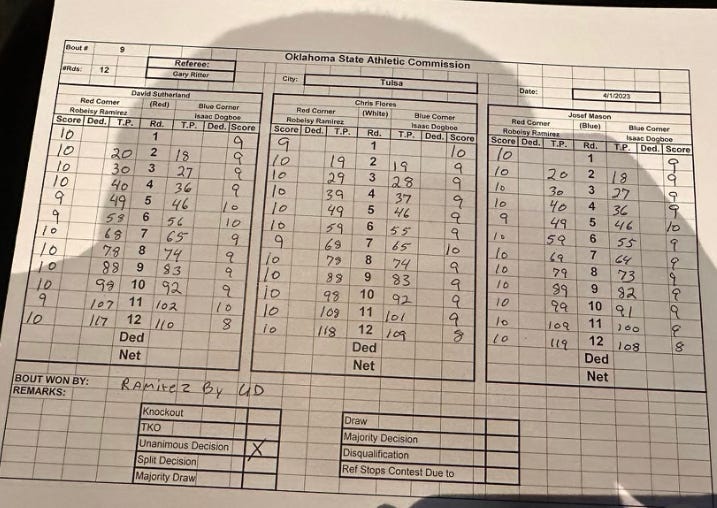 Oklahoma State Athletic Commission
Bout # 9
#Rds: 12
Referee:
Gary Ritter
City: Tulsa
Date: 4/1/2023
David Sutherland
Red Corner (Red) Blue Corner
Robeisy Ramirez Isaac Dogboe
Score Ded. T.P. Rd. T.P. Ded. Score
10 1 9
10 20 2 18 9
10 30 3 27 9
10 40 4 36 9
9 49 5 46 10
9 58 6 56 10
10 68 7 65 9
10 78 8 74 9
10 88 9 83 9
10 98 10 92 9
9 107 11 102 10
10 117 12 110 8
Ded
Net
Chris Flores
Red Corner (White) Blue Corner
Robeisy Ramirez Isaac Dogboe
Score Ded. T.P. Rd. T.P. Ded. Score
9 1 10
10 19 2 19 9
10 29 3 28 9
10 39 4 37 9
10 49 5 46 9
10 59 6 55 9
9 68 7 65 10
10 78 8 74 9
10 88 9 83 9
10 98 10 92 9
10 108 11 101 9
10 118 12 109 8
Ded
Net
Josef Mason
Red Corner (Blue) Blue Corner
Robeisy Ramirez Isaac Dogboe
Score Ded. T.P. Rd. T.P. Ded. Score
10 1 9
10 20 2 18 9
10 30 3 27 9
10 40 4 36 9
9 49 5 46 10
10 59 6 55 9
10 69 7 64 9
10 79 8 73 9
10 89 9 82 9
10 99 10 91 9
10 109 11 100 9
10 119 12 108 8
Ded
Net
BOUT WON BY: RAMIREZ BY UD
REMARKS:
Knockout
TKO
Unanimous Decision X
Split Decision
Majority Draw
Draw
Majority Decision
Disqualification
Ref Stops Contest Due to